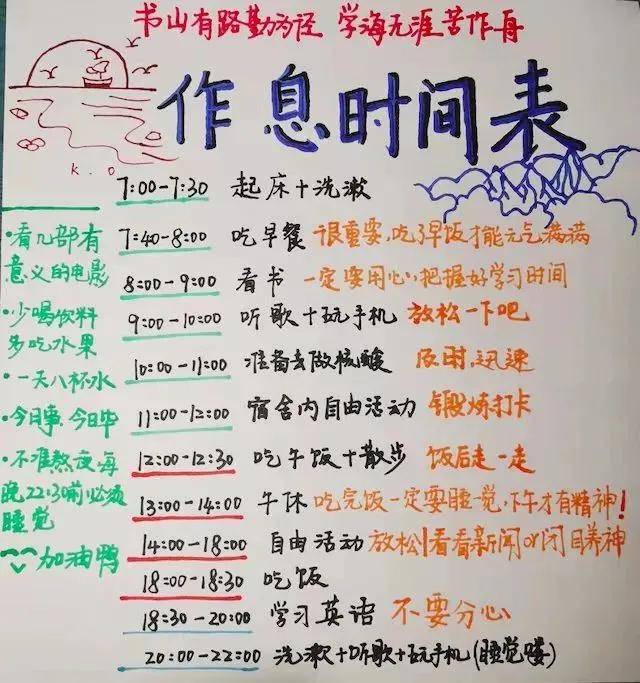 书山有路勤为径 学海无涯苦作舟
作息时间表
K.O
7:00-7:30 起床+洗漱
7:40-8:00 吃早餐 很重要,吃了早饭才能元气满满
8:00-9:00 看书 一定要用心,把握好学习时间
9:00-10:00 听歌+玩手机 放松一下吧
10:00-11:00 准备去做核酸 及时,迅速
11:00-12:00 宿舍内自由活动 锻炼打卡
12:00-12:30 吃午饭+散步 饭后走一走
13:00-14:00 午休 吃完饭一定要睡一觉,下午才有精神!
14:00-18:00 自由活动 放松|看看新闻or闭目养神
18:00-18:30 吃饭
18:30-20:00 学习英语 不要分心
20:00-22:00 洗漱+听歌+玩手机(睡觉喽)
·看几部有
意义的电影
·少喝饮料
多吃水果
·一天八杯水
·今日事.今日毕
·不准熬夜,每
晚22:30前必须
睡觉
加油鸭